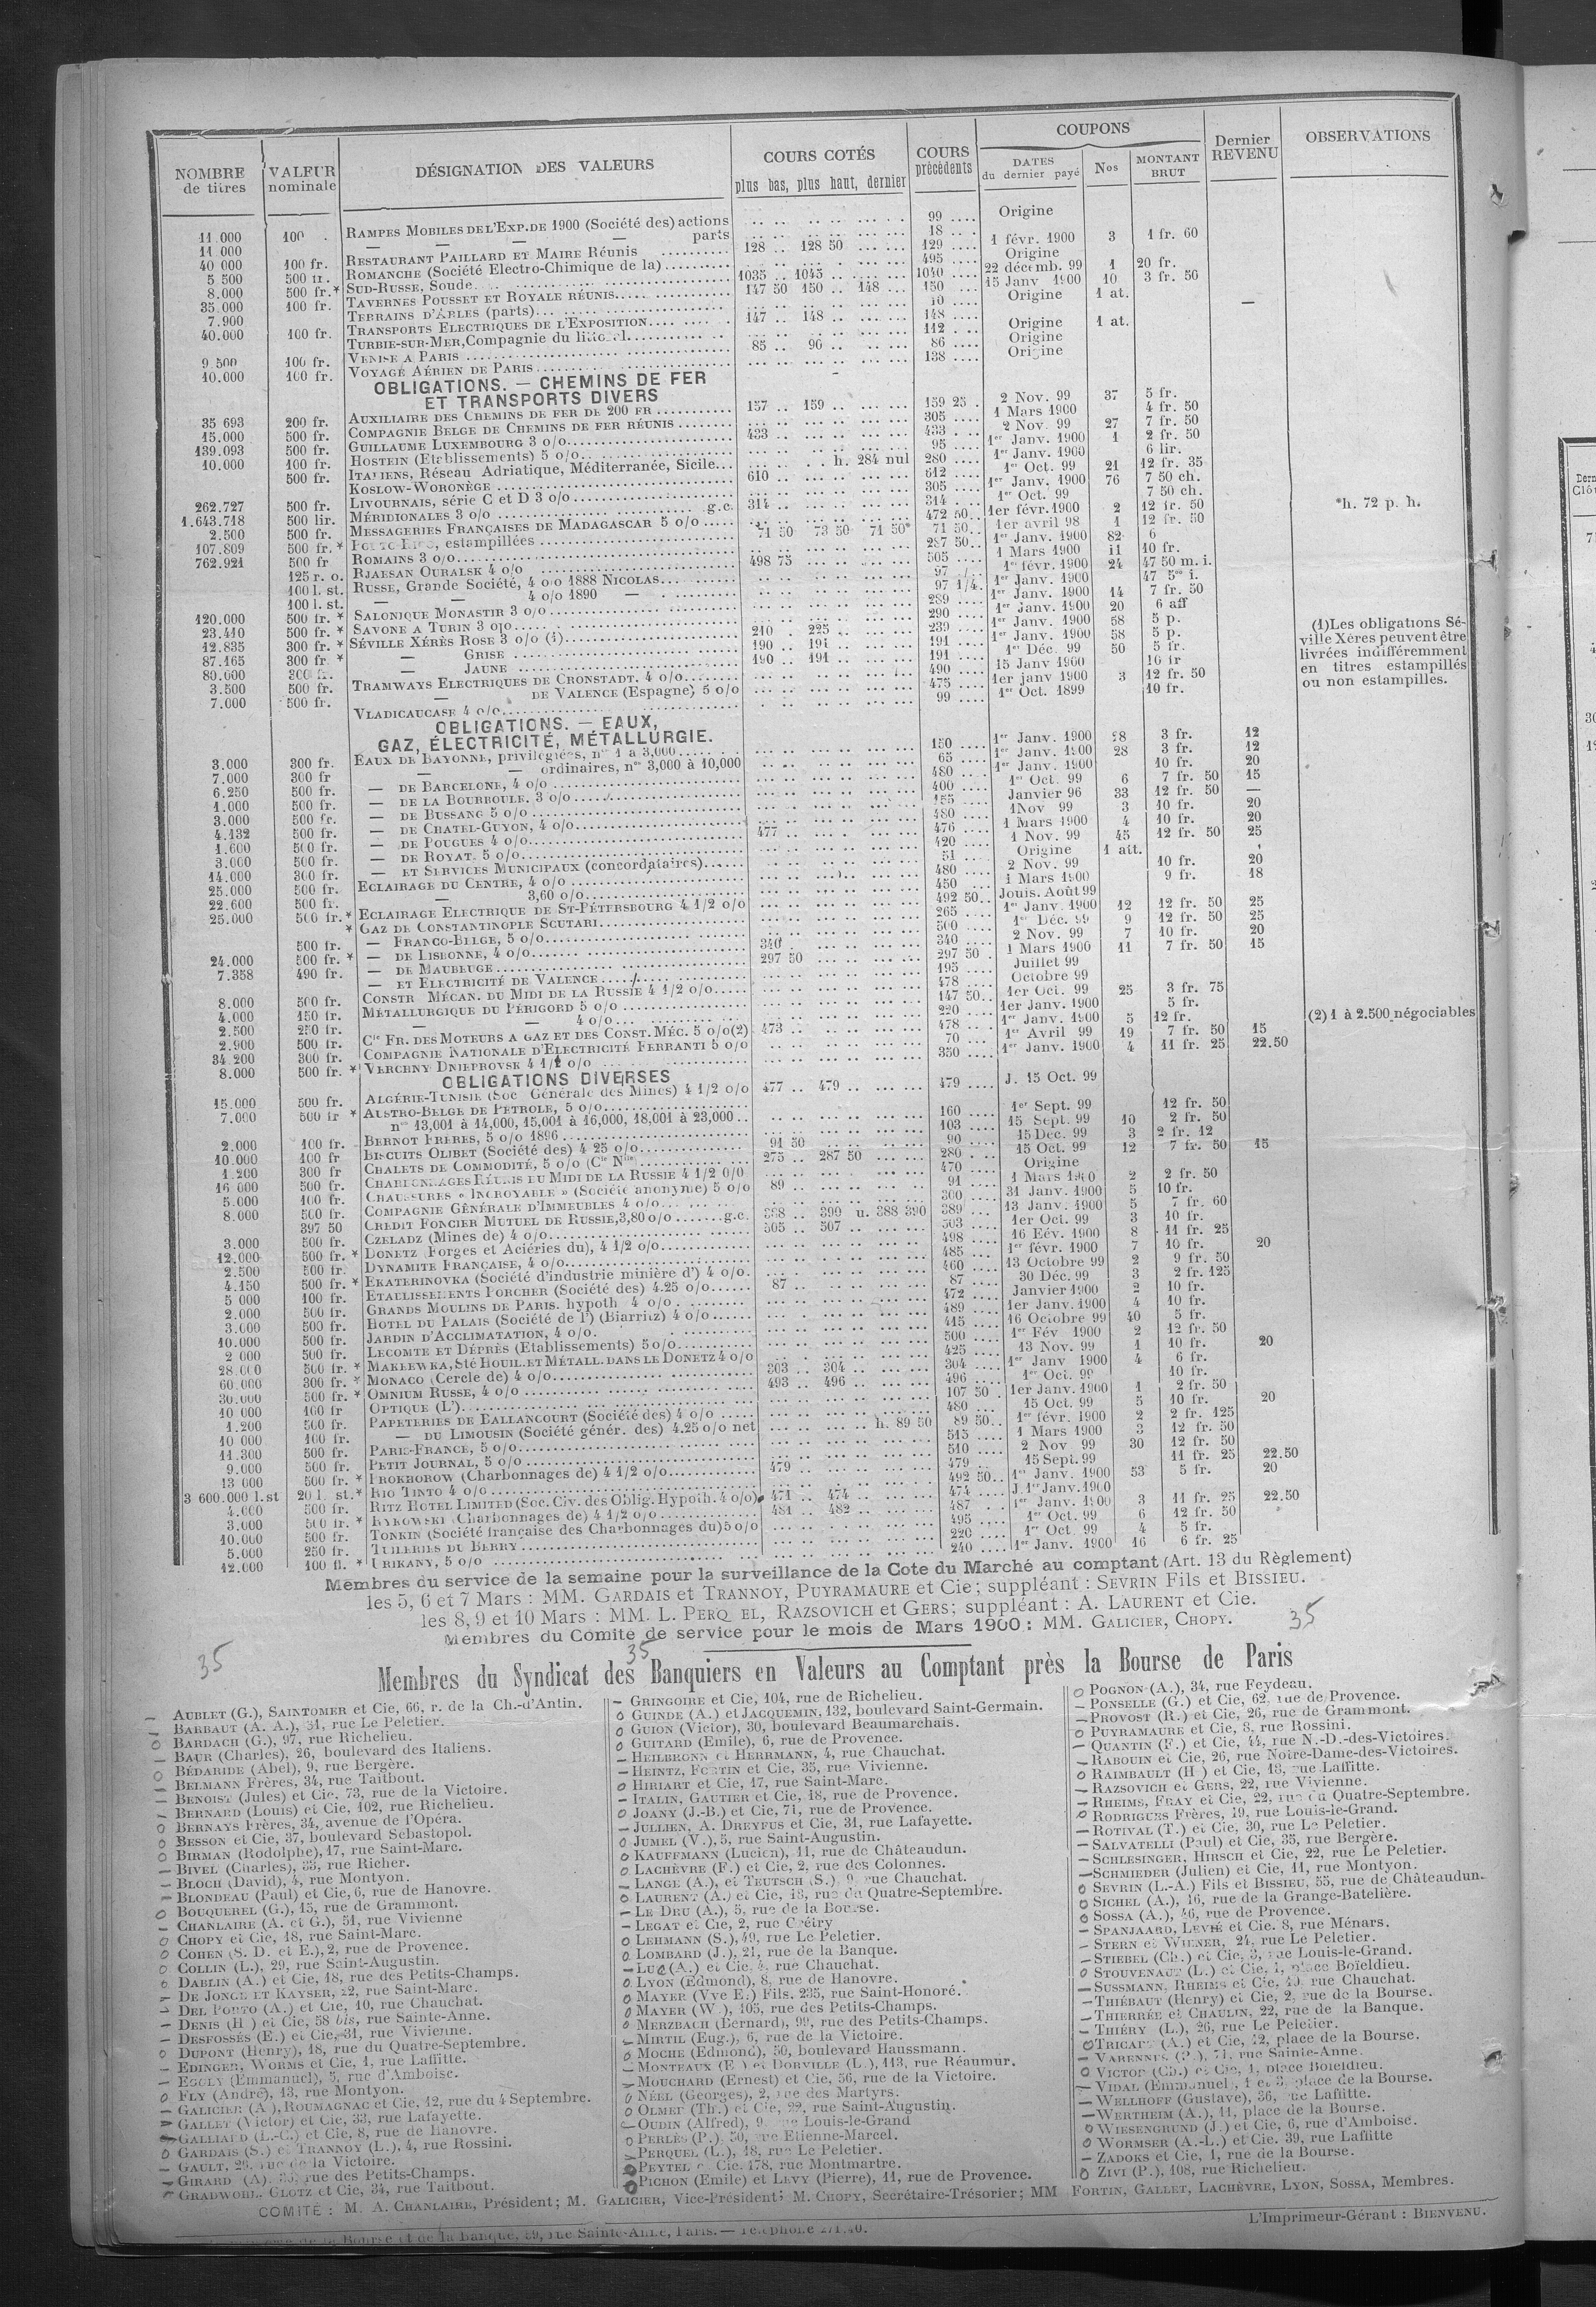 NOMBRE de titres | VALEUR nominale | DÉSIGNATION DES VALEURS | COURS COTÉS plus bas, plus haut, dernier | COURS précédents | COUPONS DATES du dernier payé | Nos | MONTANT BRUT | Dernier REVENU | OBSERVATIONS
11.000 100 . RAMPES MOBILES DE L'EXP. DE 1900 (Société des) actions 99 Origine
11 000 — — — — parts 18
40 000 100 fr. RESTAURANT PAILLARD ET MAIRE Réunis 128 128 50 129 1 févr. 1900 3 1 fr. 60
5 500 500 fr. ROMANCHE (Société Electro-Chimique de la) 495 Origine
8.000 500 fr.* SUD-RUSSE, Soude 1035 1045 1040 22 décemb. 99 1 20 fr.
35.000 100 fr. TAVERNES POUSSET ET ROYALE RÉUNIS 147 50 150 148 150 15 Janv 1900 10 3 fr. 50
7.900 TERRAINS D'ARLES (parts) 10 Origine 1 at.
40.000 100 fr. TRANSPORTS ELECTRIQUES DE L'EXPOSITION 147 148 148
TURBIE-SUR-MER, Compagnie du littoral 112 Origine 1 at.
9 500 100 fr. VENISE A PARIS 85 90 86 Origine
10.000 100 fr. VOYAGE AÉRIEN DE PARIS 138 Origine
OBLIGATIONS. — CHEMINS DE FER
ET TRANSPORTS DIVERS
35 693 200 fr. AUXILIAIRE DES CHEMINS DE FER DE 200 FR 157 159 159 25 2 Nov. 99 37 5 fr.
15.000 500 fr. COMPAGNIE BELGE DE CHEMINS DE FER RÉUNIS 305 1 Mars 1900 4 fr. 50
139.093 500 fr. GUILLAUME LUXEMBOURG 3 o/o 433 433 2 Nov. 99 27 7 fr. 50
10.000 100 fr. HOSTEIN (Etablissements) 5 o/o 95 1er Janv. 1900 1 2 fr. 50
500 fr. ITALIENS, Réseau Adriatique, Méditerranée, Sicile h. 284 nul 280 1er Janv. 1900 6 lir.
KOSLOW-WORONÈGE 610 612 1er Oct. 99 21 12 fr. 35
262.727 500 fr. LIVOURNAIS, série C et D 3 o/o 305 1er Janv. 1900 76 7 50 ch.
1.643.718 500 lir. MÉRIDIONALES 3 o/o g.c. 314 314 1er Oct. 99 7 50 ch.
2.500 500 fr. MESSAGERIES FRANÇAISES DE MADAGASCAR 5 o/o 472 50 1er févr. 1900 2 12 fr. 50
107.809 500 fr.* PORTO-RICO, estampillées 71 50 73 50 71 50* 71 50 1er avril 98 1 12 fr. 50 *h. 72 p. h.
762.921 500 fr ROMAINS 3 o/o 287 50 1er Janv. 1900 82 6
125 r. o. RJAESAN OURALSK 4 o/o 498 75 505 1 Mars 1900 11 10 fr.
100 l. st. RUSSE, Grande Société, 4 o/o 1888 NICOLAS 97 1er févr. 1900 24 47 50 m. i.
100 l. st. — — 4 o/o 1890 — 97 1/4 1er Janv. 1900
120.000 500 fr. * SALONIQUE MONASTIR 3 o/o 289 1er Janv. 1900 14 7 fr. 50
23.410 500 fr. * SAVONE A TURIN 3 o/o 290 1er Janv. 1900 20 6 aff
12.835 300 fr. * SÉVILLE XÉRÈS ROSE 3 o/o (1) 210 225 239 1er Janv. 1900 58 5 p.
87.165 300 fr * — GRISE 190 191 191 1er Janv. 1900 58 5 p.
80.000 300 fr. — JAUNE 190 191 191 1er Déc. 99 50 5 fr.
3.500 500 fr. TRAMWAYS ELECTRIQUES DE CRONSTADT. 4 o/o 490 15 Janv 1900 10 fr
7.000 500 fr. — DE VALENCE (Espagne) 5 o/o 475 1er janv 1900 3 12 fr. 50
VLADICAUCASE 4 o/o 99 1er Oct. 1899 10 fr.
(1) Les obligations Séville Xéres peuvent être livrées indifféremment en titres estampillés ou non estampillés.
OBLIGATIONS. — EAUX,
GAZ, ÉLECTRICITÉ, MÉTALLURGIE.
3.000 300 fr. EAUX DE BAYONNE, privilégiées, nos 1 à 3,000 150 1er Janv. 1900 28 3 fr. 12
7.000 300 fr — — ordinaires, nos 3,000 à 10,000 65 1er Janv. 1900 28 3 fr. 12
6.250 500 fr. — DE BARCELONE, 4 o/o 480 1er Janv. 1900 10 fr. 20
1.000 500 fr. — DE LA BOURBOULE. 3 o/o 400 1er Oct. 99 6 7 fr. 50 15
3.000 500 fr. — DE BUSSANG 5 o/o 155 Janvier 96 33 12 fr. 50 —
4.132 500 fr. — DE CHATEL-GUYON, 4 o/o 480 1 Nov 99 3 10 fr. 20
1.600 500 fr. — DE POUGUES 4 o/o 477 476 1 Mars 1900 4 10 fr. 20
3.000 500 fr. — DE ROYAT. 5 o/o 420 1 Nov. 99 45 12 fr. 50 25
14.000 300 fr. — ET SERVICES MUNICIPAUX (concordataires) 51 Origine 1 att.
25.000 500 fr. ECLAIRAGE DU CENTRE, 4 o/o 480 2 Nov. 99 10 fr. 20
22.600 500 fr. — 3,60 o/o 450 1 Mars 1900 9 fr. 18
25.000 500 fr.* ECLAIRAGE ELECTRIQUE DE ST-PÉTERSBOURG 4 1/2 o/o 492 50 Jouis. Août 99
* GAZ DE CONSTANTINOPLE SCUTARI 265 1er Janv. 1900 12 12 fr. 50 25
500 fr. — FRANCO-BELGE, 5 o/o 500 1er Déc. 99 9 12 fr. 50 25
24.000 500 fr. * — DE LISBONNE, 4 o/o 340 340 2 Nov. 99 7 10 fr. 20
7.358 490 fr. — DE MAUBEUGE 297 50 297 50 1 Mars 1900 11 7 fr. 50 15
— ET ELECTRICITÉ DE VALENCE 195 Juillet 99
8.000 500 fr. CONSTR MÉCAN. DU MIDI DE LA RUSSIE 4 1/2 o/o 478 Octobre 99
4.000 150 fr. MÉTALLURGIQUE DU PÉRIGORD 5 o/o 147 50 1er Oct. 99 25 3 fr. 75
2.500 250 fr. — — 4 o/o 220 1er Janv. 1900 5 fr.
2.900 500 fr. Cie FR. DES MOTEURS A GAZ ET DES CONST. MÉC. 5 o/o (2) 473 478 1er Janv. 1900 5 12 fr. (2) 1 à 2.500 négociables
34 200 300 fr. COMPAGNIE NATIONALE D'ELECTRICITÉ FERRANTI 5 o/o 70 1er Avril 99 19 7 fr. 50 15
8.000 500 fr. * VERCHNY DNIEPROVSK 4 1/2 o/o 350 1er Janv. 1900 4 11 fr. 25 22.50
OBLIGATIONS DIVERSES
15.000 500 fr. ALGÉRIE-TUNISIE (Soc Générale des Mines) 4 1/2 o/o 477 479 479 J. 15 Oct. 99
7.000 500 fr * AUSTRO-BELGE DE PETROLE, 5 o/o
nos 13,001 à 14,000, 15,001 à 16,000, 18,001 à 23,000 160 1er Sept. 99 12 fr. 50
2.000 100 fr. BERNOT FRÈRES, 5 o/o 1896 103 15 Sept. 99 10 2 fr. 50
10.000 100 fr BISCUITS OLIBET (Société des) 4 25 o/o 91 50 90 15 Déc. 99 3 2 fr. 12
1.200 300 fr CHALETS DE COMMODITÉ, 5 o/o (Cie Nlle) 275 287 50 280 15 Oct. 99 12 7 fr. 50 15
16 000 500 fr. CHARBONNAGES RÉUNIS DU MIDI DE LA RUSSIE 4 1/2 0/0 470 Origine
5.000 100 fr. CHAUSSURES « INCROYABLE » (Société anonyme) 5 o/o 89 91 1 Mars 1900 2 2 fr. 50
8.000 500 fr. COMPAGNIE GÉNÉRALE D'IMMEUBLES 4 o/o 300 31 Janv. 1900 5 10 fr.
397 50 CREDIT FONCIER MUTUEL DE RUSSIE, 3,80 o/o g.c. 388 390 u. 388 390 389 13 Janv. 1900 5 7 fr. 60
3.000 500 fr. CZELADZ (Mines de) 4 o/o 505 507 503 1er Oct. 99 3 10 fr.
12.000 500 fr. * DONETZ Forges et Aciéries du), 4 1/2 o/o 498 16 Eév. 1900 8 11 fr. 25
2.500 500 fr. DYNAMITE FRANÇAISE, 4 o/o 485 1er févr. 1900 7 10 fr. 20
4.150 500 fr. * EKATERINOVKA (Société d'industrie minière d') 4 o/o. 460 13 Octobre 99 2 9 fr. 50
5 000 100 fr. ETABLISSEMENTS PORCHER (Société des) 4.25 o/o 87 87 30 Déc. 99 3 2 fr. 125
2.000 500 fr. GRANDS MOULINS DE PARIS. hypoth 4 o/o 472 Janvier 1900 2 10 fr.
3.600 500 fr. HOTEL DU PALAIS (Société de l') (Biarritz) 4 o/o 489 1er Janv. 1900 4 10 fr.
10.000 500 fr. JARDIN D'ACCLIMATATION, 4 o/o. 415 16 Octobre 99 40 5 fr.
2 000 500 fr. LECOMTE ET DÉPRÈS (Etablissements) 5 o/o 500 1er Fév 1900 2 12 fr. 50
28.000 500 fr. * MAKEEWKA, Sté HOUIL. ET MÉTALL. DANS LE DONETZ 4 o/o 425 13 Nov. 99 1 10 fr. 20
60.000 300 fr. * MONACO (Cercle de) 4 o/o 303 304 304 1er Janv 1900 4 6 fr.
30.000 500 fr. * OMNIUM RUSSE, 4 o/o 493 496 496 1er Oct. 99 10 fr.
10 000 100 fr OPTIQUE (L') 107 50 1er Janv. 1900 1 2 fr. 50
1.200 500 fr. PAPETERIES DE BALLANCOURT (Société des) 4 o/o 480 15 Oct. 99 5 10 fr. 20
10 000 100 fr. — DU LIMOUSIN (Société génér. des) 4.25 o/o net h. 89 50 89 50 1er févr. 1900 2 2 fr. 125
11.300 500 fr. PARIS-FRANCE, 5 o/o 515 1 Mars 1900 3 12 fr. 50
9.000 500 fr. PETIT JOURNAL, 5 o/o 510 2 Nov 99 30 12 fr. 50
13 000 500 fr. * PROKHOROW (Charbonnages de) 4 1/2 o/o 479 479 15 Sept. 99 11 fr. 25 22.50
3 600.000 l. st 20 l. st.* RIO TINTO 4 o/o 492 50 1er Janv. 1900 53 5 fr. 20
4.000 500 fr. RITZ HOTEL LIMITED (Soc. Civ. des Oblig. Hypoth. 4 o/o) 471 474 474 J. 1er Janv. 1900
3.000 500 fr. * RYKOWSKI (Charbonnages de) 4 1/2 o/o 481 482 487 1er Janv. 1900 3 11 fr. 25 22.50
10.000 500 fr. TONKIN (Société française des Charbonnages du) 5 o/o 495 1er Oct. 99 6 12 fr. 50
5.000 250 fr. TUILERIES DU BERRY 220 1er Oct. 99 4 5 fr.
12.000 100 fl. * URIKANY, 5 o/o 240 1er Janv. 1900 16 6 fr. 25
Membres du service de la semaine pour la surveillance de la Cote du Marché au comptant (Art. 13 du Règlement)
les 5, 6 et 7 Mars : MM. GARDAIS et TRANNOY, PUYRAMAURE et Cie ; suppléant : SEVRIN Fils et BISSIEU.
les 8, 9 et 10 Mars : MM. L. PERQ EL, RAZSOVICH et GERS ; suppléant : A. LAURENT et Cie.
Membres du Comite de service pour le mois de Mars 1900 : MM. GALICIER, CHOPY.
35 35 35
Membres du Syndicat des Banquiers en Valeurs au Comptant près la Bourse de Paris
AUBLET (G.), SAINTOMER et Cie, 66, r. de la Ch.-d'Antin.
BARBAUT (A. A.), 31, rue Le Peletier.
BARDACH (G.), 97, rue Richelieu.
BAUR (Charles), 26, boulevard des Italiens.
BÉDARIDE (Abel), 9, rue Bergère.
BELMANN Frères, 34, rue Taitbout.
BENOIST (Jules) et Cie, 73, rue de la Victoire.
BERNARD (Louis) et Cie, 102, rue Richelieu.
BERNAYS Frères, 34, avenue de l'Opéra.
BESSON et Cie, 37, boulevard Sebastopol.
BIRMAN (Rodolphe), 17, rue Saint-Marc.
BIVEL (Charles), 33, rue Richer.
BLOCH (David), 4, rue Montyon.
BLONDEAU (Paul) et Cie, 6, rue de Hanovre.
BOUQUEREL (G.), 15, rue de Grammont.
CHANLAIRE (A. et G.), 51, rue Vivienne
CHOPY et Cie, 18, rue Saint-Marc.
COHEN (S. D. et E.), 2, rue de Provence.
COLLIN (L.), 29, rue Saint-Augustin.
DABLIN (A.) et Cie, 18, rue des Petits-Champs.
DE JONGE ET KAYSER, 22, rue Saint-Marc.
DEL PORTO (A.) et Cie, 10, rue Chauchat.
DENIS (H ) et Cie, 58 bis, rue Sainte-Anne.
DESFOSSÉS (E.) et Cie, 31, rue Vivienne.
DUPONT (Henry), 18, rue du Quatre-Septembre.
EDINGER, WORMS et Cie, 1, rue Laffitte.
EGGLY (Emmanuel), 5, rue d'Amboise.
FLY (André), 13, rue Montyon.
GALICIER (A ), ROUMAGNAC et Cie, 12, rue du 4 Septembre.
GALLET (Victor) et Cie, 33, rue Lafayette.
GALLIARD (L.-C.) et Cie, 8, rue de Hanovre.
GARDAIS (S.) et TRANNOY (L.), 4, rue Rossini.
GAULT, 29, rue de la Victoire.
GIRARD (A), 35, rue des Petits-Champs.
GRADWOHL, GLOTZ et Cie, 34, rue Taitbout.
GRINGOIRE et Cie, 104, rue de Richelieu.
GUINDE (A.) et JACQUEMIN, 132, boulevard Saint-Germain.
GUION (Victor), 30, boulevard Beaumarchais.
GUITARD (Emile), 6, rue de Provence.
HEILBRONN et HERRMANN, 4, rue Chauchat.
HEINTZ, FORTIN et Cie, 35, rue Vivienne.
HIRIART et Cie, 17, rue Saint-Marc.
ITALIN, GAUTIER et Cie, 18, rue de Provence.
JOANY (J.-B.) et Cie, 71, rue de Provence.
JULLIEN, A. DREYFUS et Cie, 31, rue Lafayette.
JUMEL (V.), 5, rue Saint-Augustin.
KAUFFMANN (Lucien), 11, rue de Châteaudun.
LACHÈVRE (F.) et Cie, 2, rue des Colonnes.
LANGE (A.), et TEUTSCH (S.) 9, rue Chauchat.
LAURENT (A.) et Cie, 18, rue du Quatre-Septembre.
LE DRU (A.), 5, rue de la Bourse.
LEGAT et Cie, 2, rue Grétry
LEHMANN (S.), 49, rue Le Peletier.
LOMBARD (J.), 21, rue de la Banque.
LUC (A.) et Cie, 4, rue Chauchat.
LYON (Edmond), 8, rue de Hanovre.
MAYER (Vve E.) Fils. 235, rue Saint-Honoré.
MAYER (W ), 105, rue des Petits-Champs.
MERZBACH (Bernard), 99, rue des Petits-Champs.
MIRTIL (Eug.), 6, rue de la Victoire.
MOCHE (Edmond), 50, boulevard Haussmann.
MONTEAUX (E ) et DORVILLE (L.), 113, rue Réaumur.
MOUCHARD (Ernest) et Cie, 56, rue de la Victoire.
NÉEL (Georges), 2, rue des Martyrs.
OLMER (Th.) et Cie, 22, rue Saint-Augustin.
OUDIN (Alfred), 9, rue Louis-le-Grand
PERLÈS (P.), 50, rue Etienne-Marcel.
PERQUEL (L.), 18, rue Le Peletier.
PEYTEL et Cie. 178, rue Montmartre.
PICHON (Emile) et LEVY (Pierre), 11, rue de Provence.
POGNON (A.), 34, rue Feydeau.
PONSELLE (G.) et Cie, 62, rue de Provence.
PROVOST (R.) et Cie, 26, rue de Grammont.
PUYRAMAURE et Cie, 8, rue Rossini.
QUANTIN (F.) et Cie, 44, rue N.-D.-des-Victoires.
RABOUIN et Cie, 26, rue Notre-Dame-des-Victoires.
RAIMBAULT (H ) et Cie, 18, rue Laffitte.
RAZSOVICH et GERS, 22, rue Vivienne.
RHEIMS, FRAY et Cie, 22, rue du Quatre-Septembre.
RODRIGUES Frères, 19, rue Louis-le-Grand.
ROTIVAL (T.) et Cie, 30, rue Le Peletier.
SALVATELLI (Paul) et Cie, 35, rue Bergère.
SCHLESINGER, HIRSCH et Cie, 22, rue Le Peletier.
SCHMIEDER (Julien) et Cie, 11, rue Montyon.
SEVRIN (L.-A.) Fils et BISSIEU, 55, rue de Châteaudun.
SICHEL (A.), 16, rue de la Grange-Batelière.
SOSSA (A.), 46, rue de Provence.
SPANJAARD, LEVIÉ et Cie. 8, rue Ménars.
STERN et WIENER, 24, rue Le Peletier.
STIEBEL (Ch.) et Cie, 3, rue Louis-le-Grand.
STOUVENAUT (L.) et Cie, 1, place Boïeldieu.
SUSSMANN, RHEIMS et Cie, 10, rue Chauchat.
THIÉBAUT (Henry) et Cie, 2, rue de la Bourse.
THIERRÉE et CHAULIN, 22, rue de la Banque.
THIÉRY (L.), 26, rue Le Peletier.
TRICART (A.) et Cie, 12, place de la Bourse.
VARENNES (P.), 71, rue Sainte-Anne.
VICTOR (Ch.) et Cie, 1, place Boïeldieu.
VIDAL (Emmanuel), 1 et 3, place de la Bourse.
WELLHOFF (Gustave), 36, rue Laffitte.
WERTHEIM (A.), 11, place de la Bourse.
WIESENGRUND (J.) et Cie, 6, rue d'Amboise.
WORMSER (A.-L.) et Cie. 39, rue Laffitte
ZADOKS et Cie, 1, rue de la Bourse.
ZIVI (P.), 108, rue Richelieu.
COMITÉ : M. A. CHANLAIRE, Président ; M. GALICIER, Vice-Président ; M. CHOPY, Secrétaire-Trésorier ; MM FORTIN, GALLET, LACHÈVRE, LYON, SOSSA, Membres.
de la Bourse et de la Banque, 59, rue Sainte-Anne, Paris. — Téléphone
L'Imprimeur-Gérant : BIENVENU.